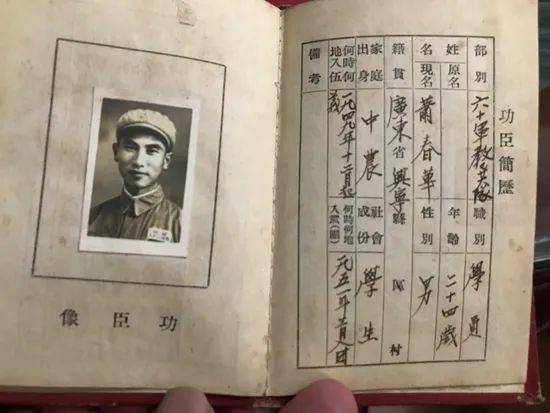 功臣簡歷
部別 六十軍教隊 職別 學員
姓名 原名 年齡 二十四歲
現名 蕭春華 性別 男
籍貫 廣東省興寧縣 區 村
家庭出身 中農 社會成份 學生
何時何地入伍 一九四九年十二月起義 何時何地入黨(團) 五一年月入
備考
功臣像